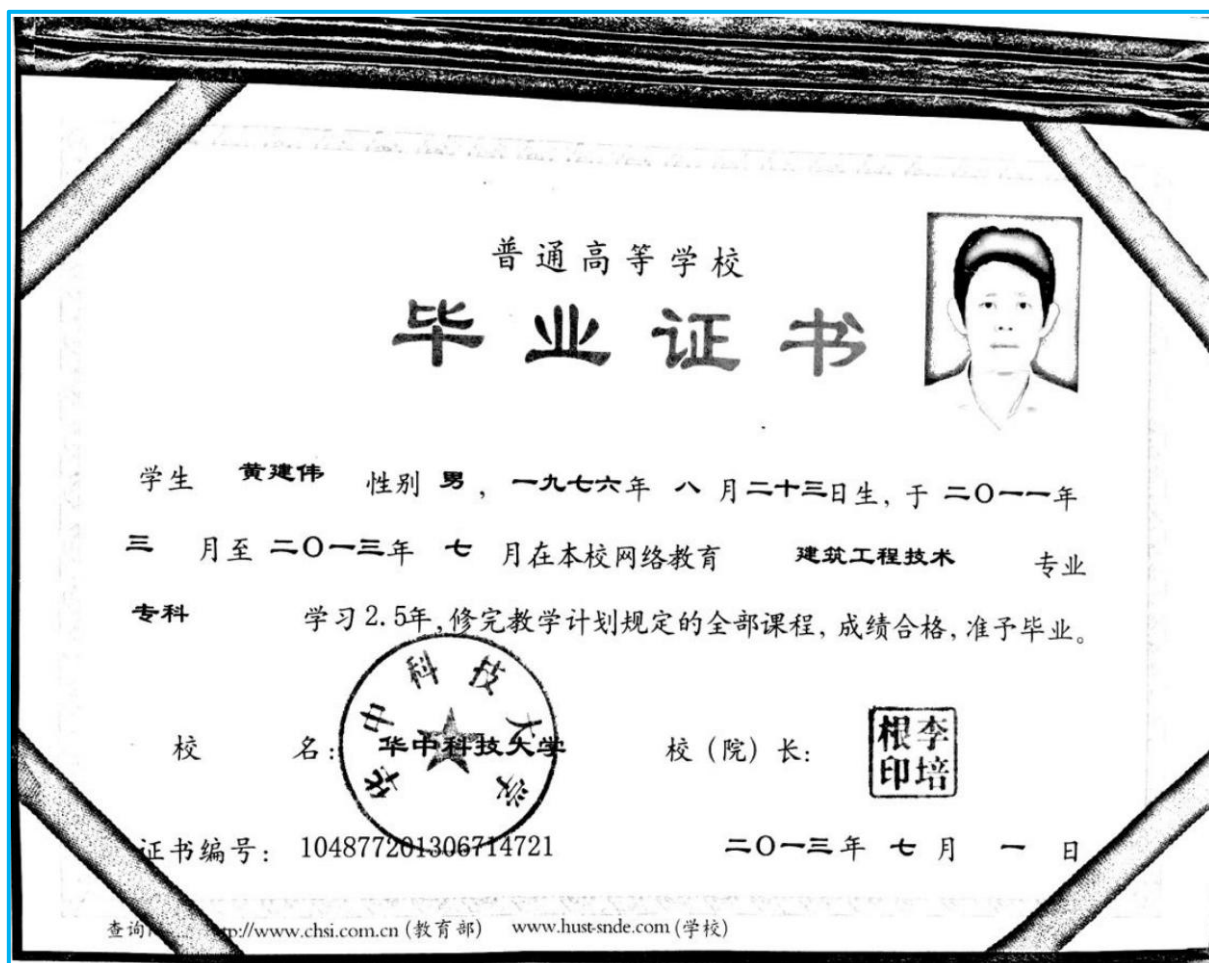 普通高等学校
毕业证书
学生 黄建伟 性别 男，一九七六年 八 月二十三日生，于 二〇一一年
三 月至 二〇一三年 七 月在本校网络教育 建筑工程技术 专业
专科 学习2.5年，修完教学计划规定的全部课程，成绩合格，准予毕业。
华中科技大学
校 名：华中科技大学 校（院）长：
李培根印
证书编号：104877201306714721 二〇一三年 七 月 一 日
查询 tp://www.chsi.com.cn (教育部) www.hust-snde.com (学校)